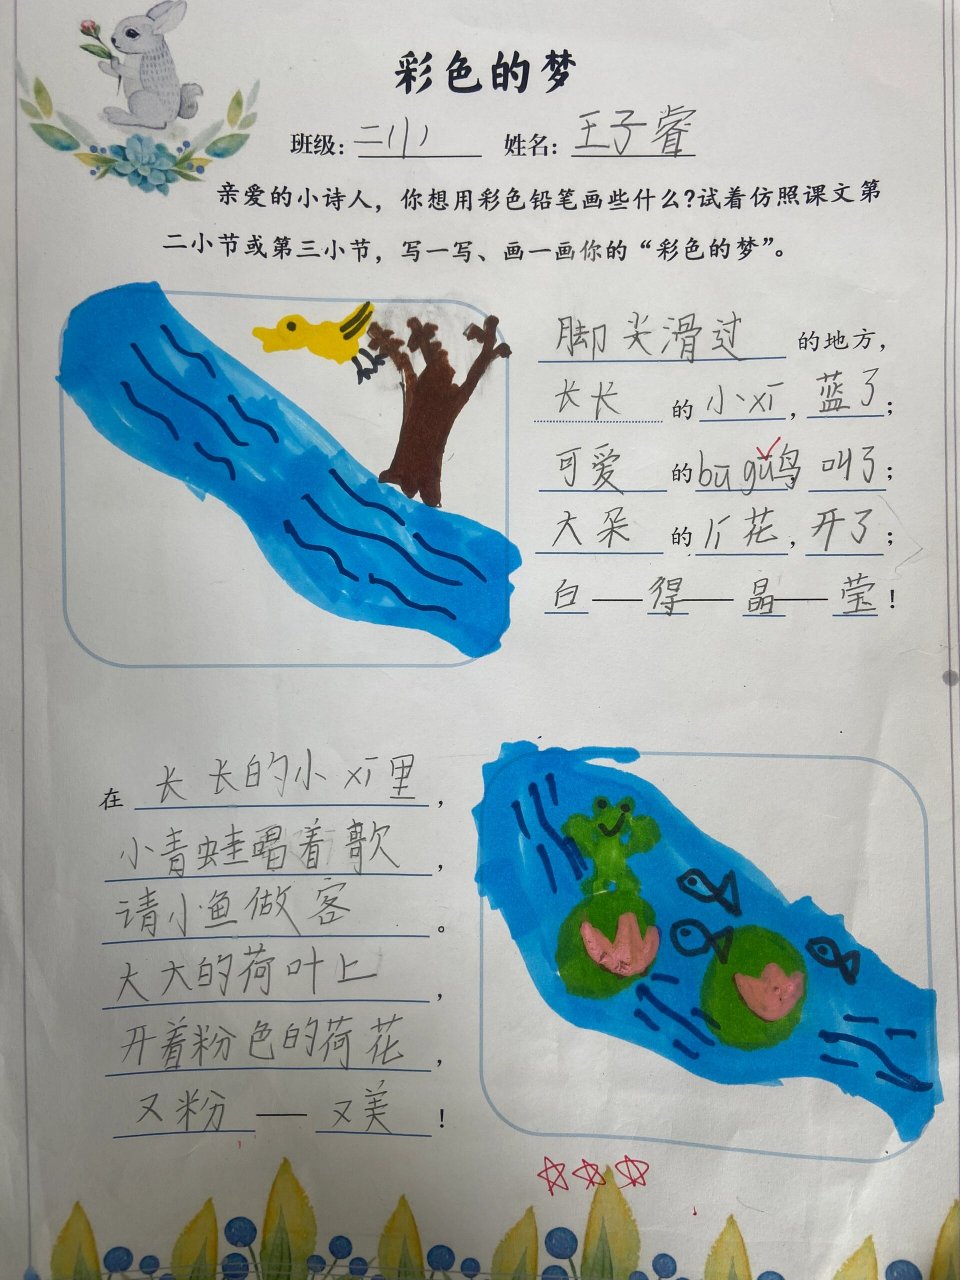 彩色的梦
班级：二(1) 姓名：王子睿
亲爱的小诗人，你想用彩色铅笔画些什么？试着仿照课文第
二小节或第三小节，写一写、画一画你的“彩色的梦”。
脚尖滑过的地方，
长长的小xī，蓝了；
可爱的bù gǔ鸟，叫了；
大朵的花，开了；
白——得——晶——莹！
在长长的小xī里，
小青蛙唱着歌，
请小鱼做客。
大大的荷叶上，
开着粉色的荷花，
又粉——又美！